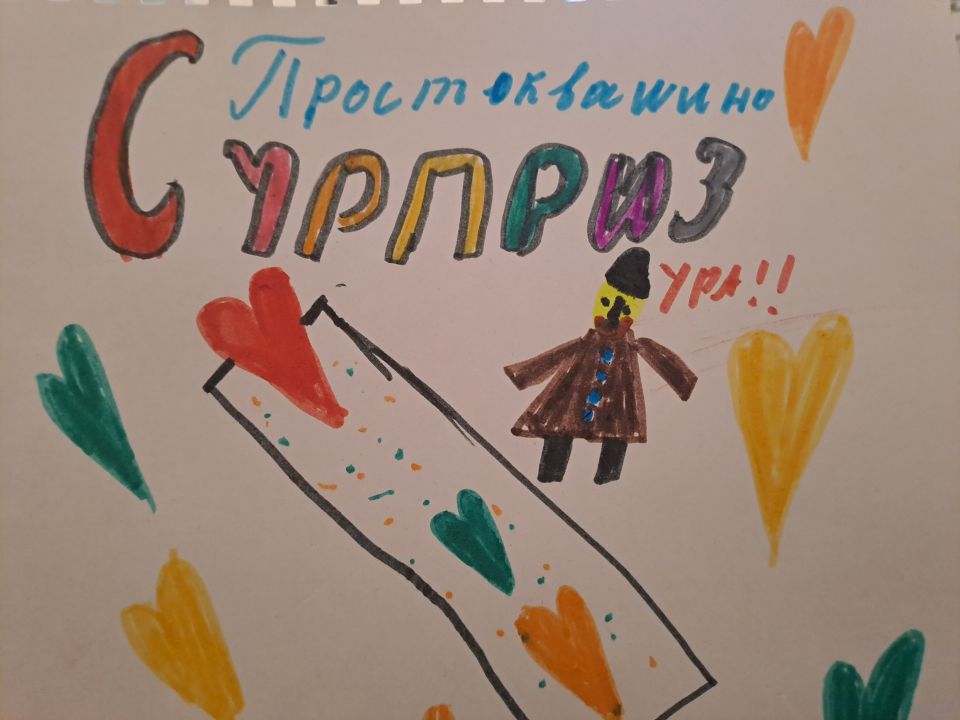 Простоквашино
Сурприз
ура!!